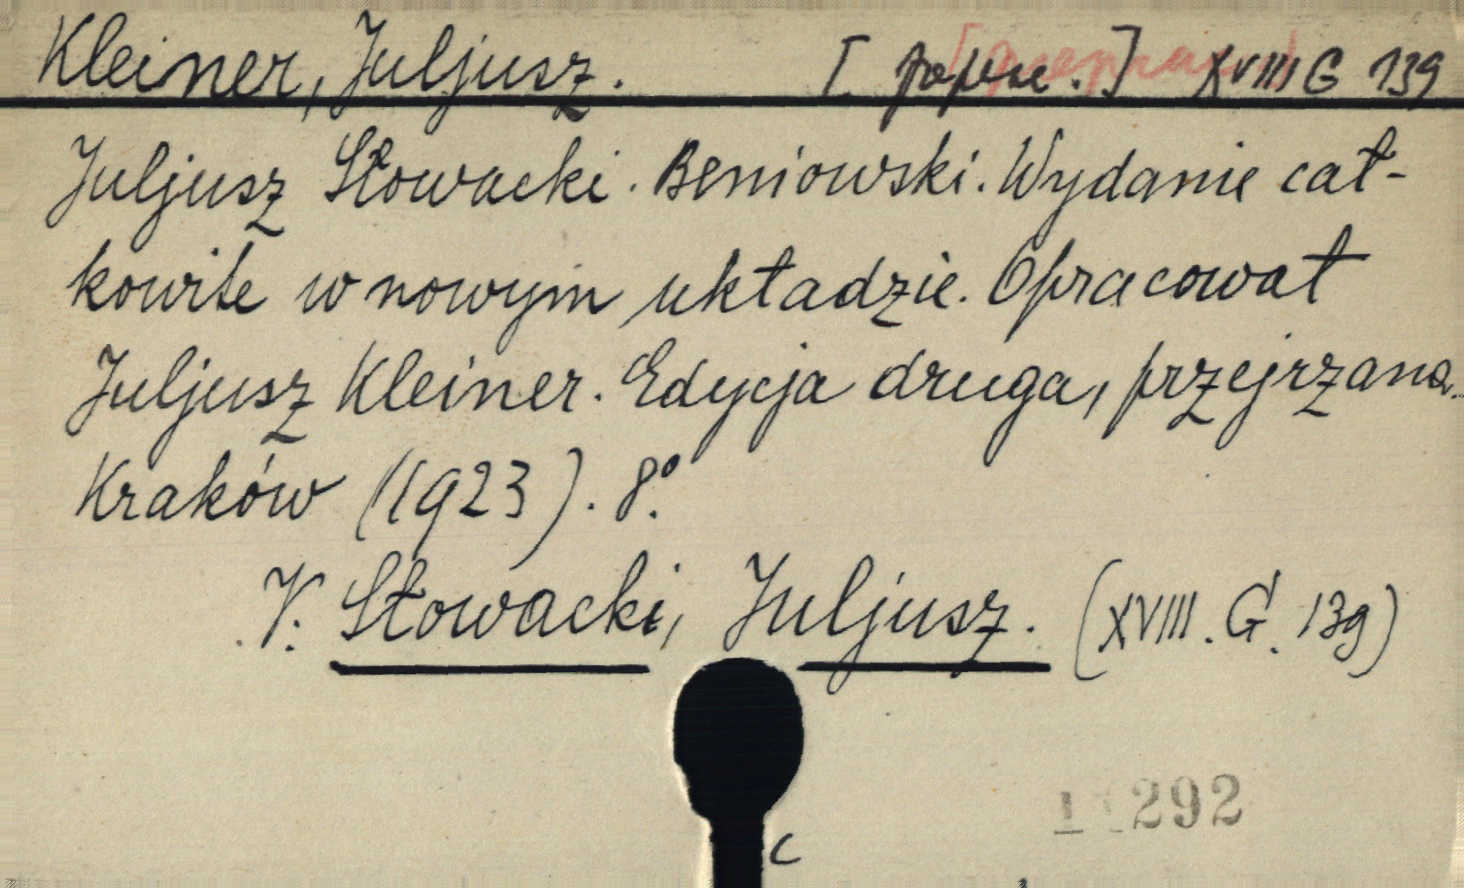 Kleiner, Juljusz. XVIII G 139
Juljusz Słowacki. Beniowski. Wydanie cał-
kowite w nowym układzie. Opracował
Juljusz Kleiner. Edycja druga, przejrzana.
Kraków (1923). 8º.
V. Słowacki, Juljusz. (XVIII. G. 139)
292
c